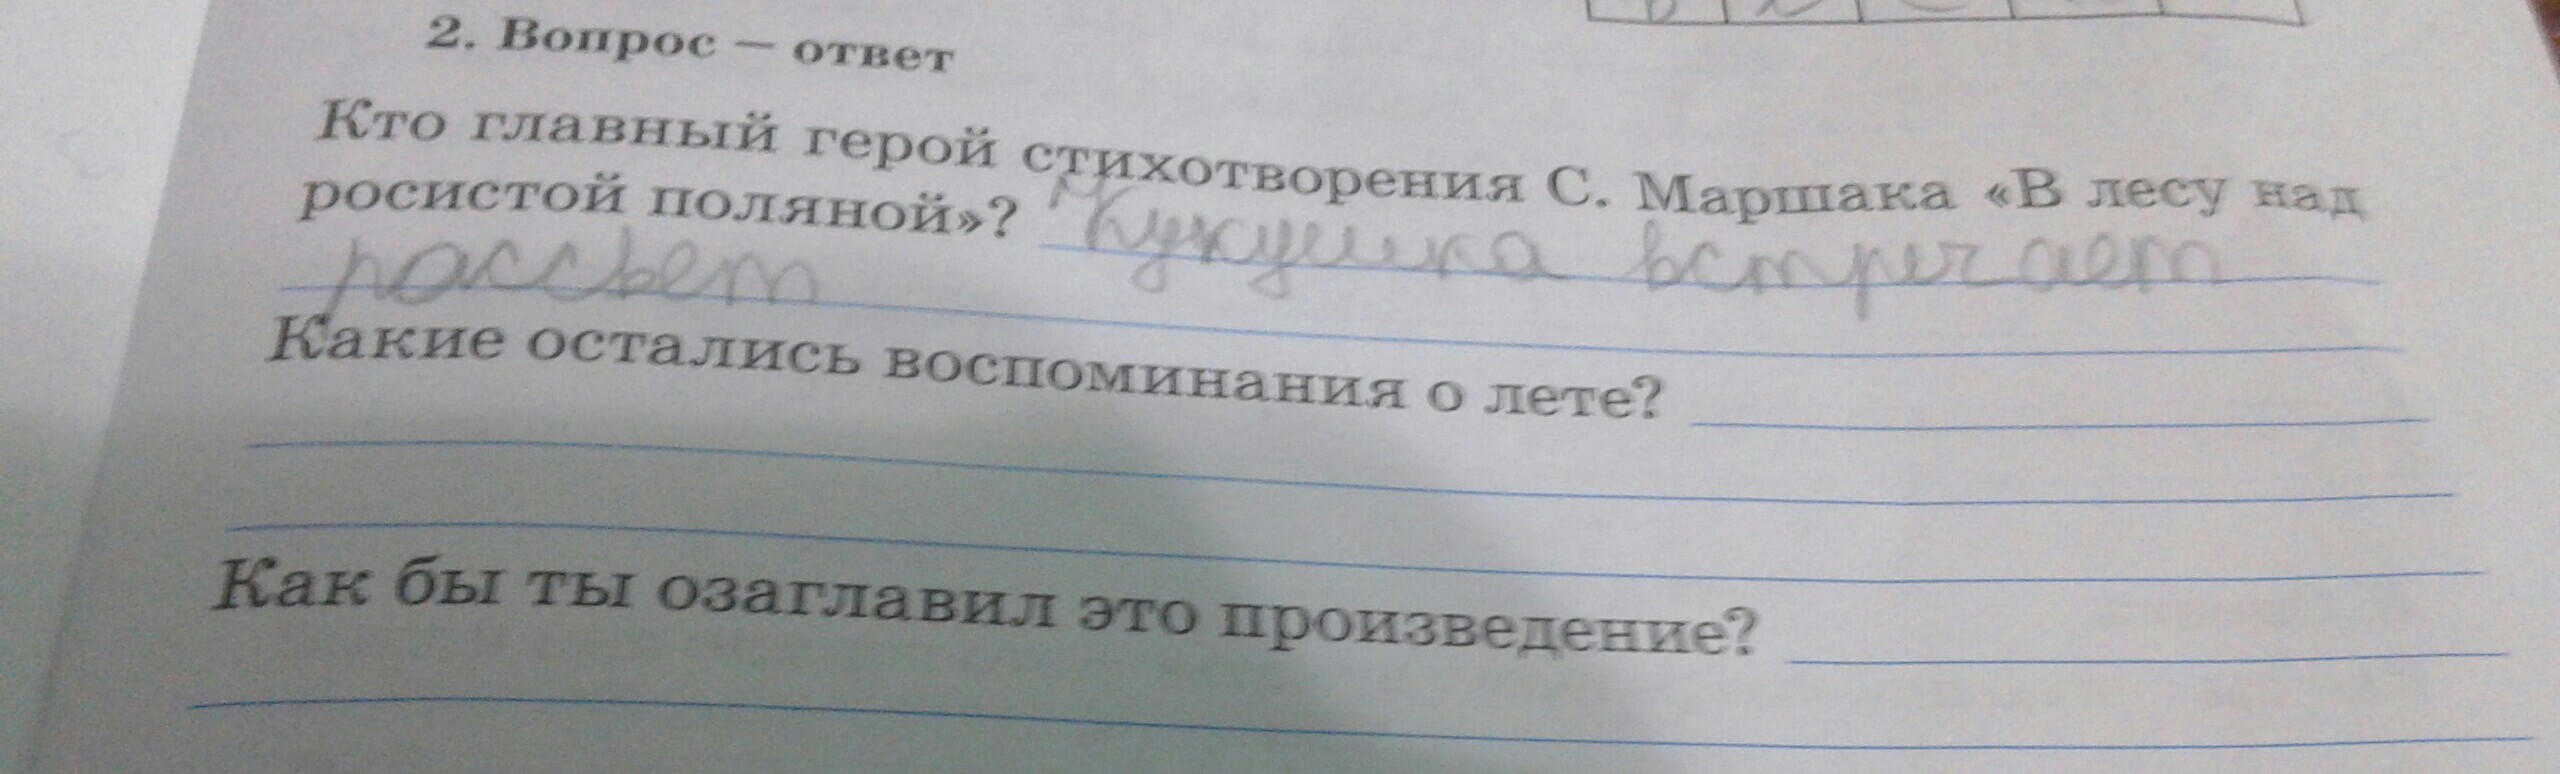 2. Вопрос – ответ
Кто главный герой стихотворения С. Маршака «В лесу над
росистой поляной»? Кукушка встречает
рассвет
Какие остались воспоминания о лете?
Как бы ты озаглавил это произведение?